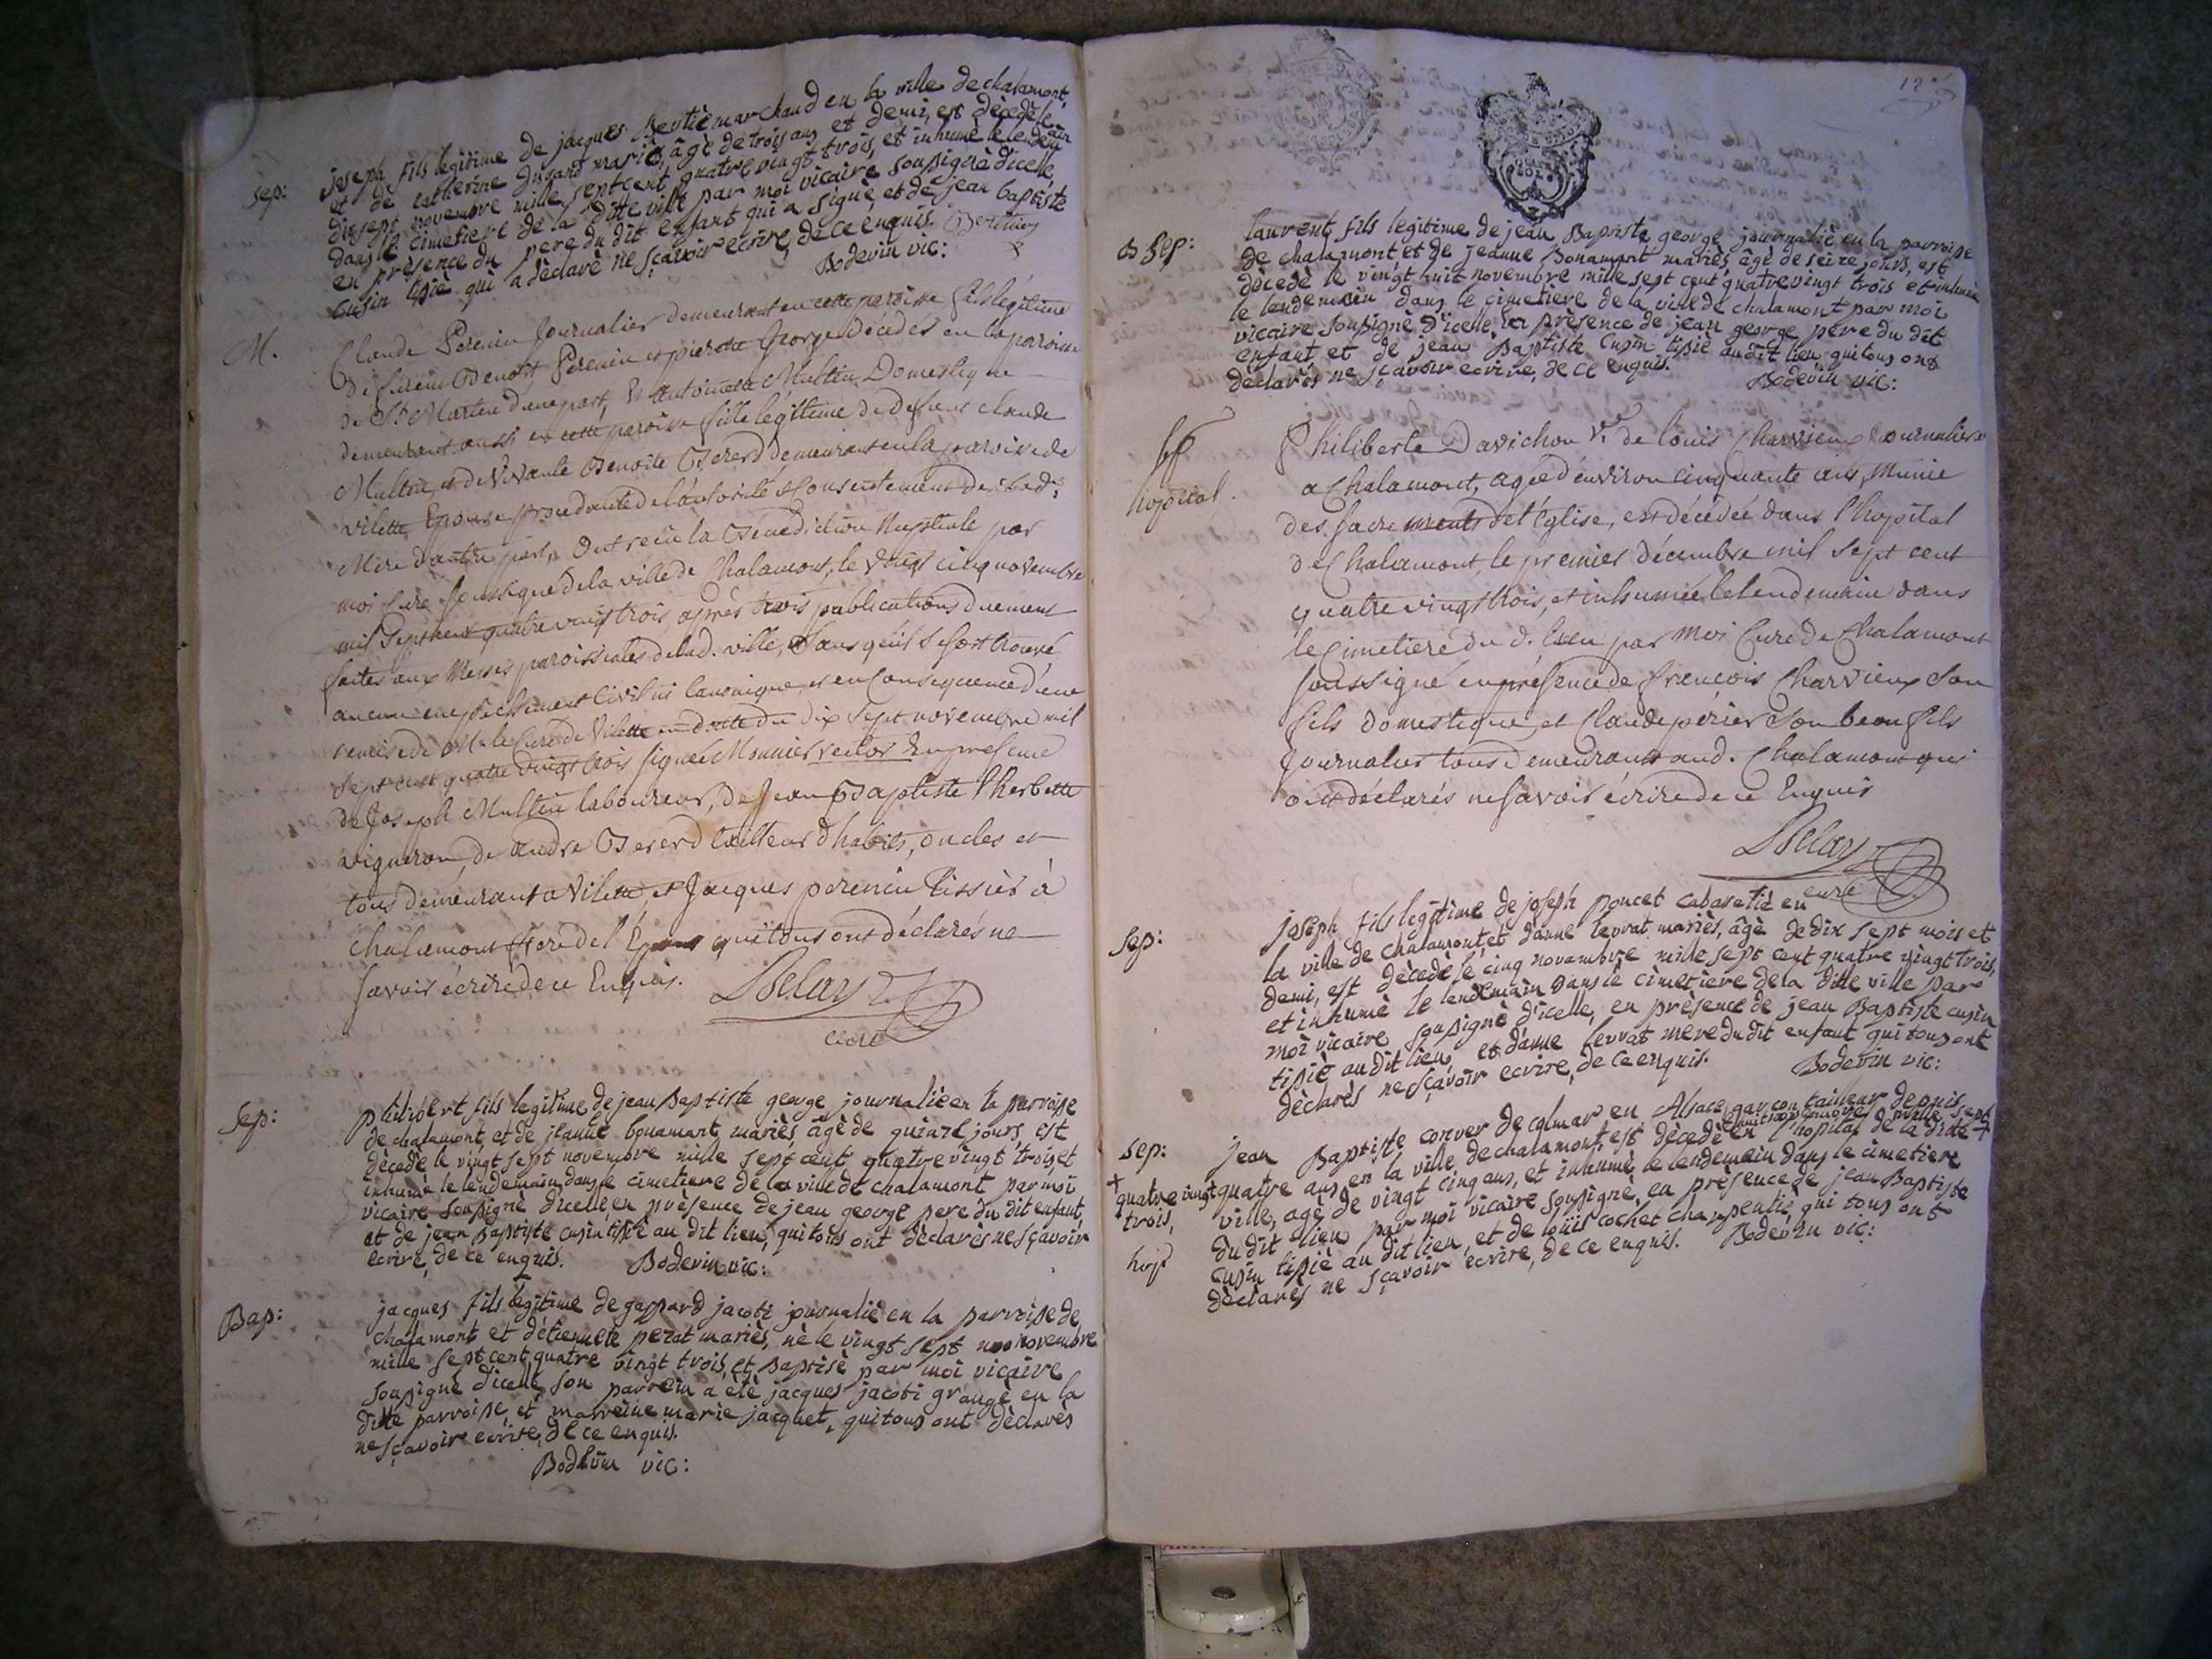 sep:
joseph fils legitime de jacques Bertiè marchand en la ville de chalamont,
et de catherine dusard mariès, âgè de trois ans et demi, est dècedè le
dixsept novembre mille sept cent quatre vingt trois, et inhumè le lendemain
dans le cimetiere de la ditte ville par moi vicaire soussignè d'icelle,
en prèsence du pere du dit enfant qui a signè et de jean baptiste
cusin tissiè qui a dèclarè ne sçavoir ecrire, de ce enquis.
Bodevin vic:
M.
Claude Perenin Journalier demeurant en cette paroisse fils légitime
de furent Benoit Perenin et pierrette George décédés en la paroisse
de St Martin d'une part, Et Antoinette Multin Domestique
demeurant aussi en cette paroisse fille légitime de defunt claude
Multin, et de vivante Benoite Bererd demeurant en la paroisse de
vilette, Epouse procedante de l'autorité et Consentement de sad:
Mere d'autre part, ont reçu la Bénédiction Nuptiale par
moi Curé soussigné de la ville de Chalamont, le vingt cinq novembre
mil sept cent quatre vingt trois, après trois publications duement
faites aux Messes paroissiales de lad. ville, sans qu'il se soit trouvé
aucun empêchement civil ni canonique, et en Consequence d'une
remise de Mr le Curé de Vilette en datte du dix sept novembre mil
sept cent quatre vingt trois signée Monnier rector En presence
de Joseph Multin laboureur, de Jean Baptiste l'herbette
vigneron, de andre Bererd tailleur d'habits, oncles et
tous demeurant a Vilette, et Jacques perenin tissier à
Chalamont frere de l'Epoux qui tous ont déclarés ne
savoir écrire de ce Enquis.
Delay
curé
Sep:
philibert fils legitime de jean Baptiste george journaliè en la parroisse
de chalamont, et de jeanne bonamant mariès, âgè de quinze jours, est
dècedè le vingt sept novembre mille sept cent quatre vingt trois, et
inhumè le lendemain dans le cimetiere de la ville de chalamont par moi
vicaire soussignè d'icelle en prèsence de jean george pere du dit enfant,
et de jean Baptiste cusin tissiè au dit lieu, qui tous ont dèclarès ne sçavoir
ecrire, de ce enquis. Bodevin vic:
Bap:
jacques fils lègitime de gaspard jacoti journaliè en la parroisse de
chalamont et d'ètiennete perat mariès, nè le vingt sept novembre
mille sept cent quatre vingt trois, et Baptisè par moi vicaire
soussignè d'icelle, son parrein a ètè jacques jacoti grangè en la
ditte parroisse, et marreine marie jacquet, qui tous ont dèclarès
ne sçavoir ecrire, de ce enquis.
Bodevin vic:
Sep:
laurent fils legitime de jean Baptiste george journaliè en la parroisse
de chalamont, et de jeanne Bonamant mariès, âgè de seize jours, est
dècedè le vingt huit novembre mille sept cent quatre vingt trois et inhumè
le lendemain dans le cimetiere de la ville de chalamont par moi
vicaire soussignè d'icelle, en prèsence de jean george pere du dit
enfant, et de jean Baptiste cusin tissiè au dit lieu, qui tous ont
dèclarès ne sçavoir ecrire, de ce enquis. Bodevin vic:
hopital.
Philiberte Davichon Ve de louis Charvieux Journalier
a Chalamont, agée d'environ cinquante ans, Munie
des sacrements de l'église, est décédée dans l'hopital
de Chalamont, le premier décembre mil sept cent
quatre vingt trois, et inhumée le lendemain dans
le Cimetiere du d. lieu par moi Curé de Chalamont
soussigné en présence de françois Charvieux son
fils domestique, et Claude périer son beau fils
Journalier tous demeurant aud. Chalamont qui
ont déclarés ne savoir écrire de ce Enquis
Delay
curé
Sep:
joseph fils legitime de joseph poncet cabaretiè en
la ville de chalamont, et d'anne levrat mariès, âgè de dix sept mois et
demi, est dècedè le cinq novembre mille sept cent quatre vingt trois,
et inhumè le lendemain dans le cimetiere de la ditte ville par
moi vicaire soussignè d'icelle, en prèsence de jean Baptiste cusin
tissiè au dit lieu, et d'anne levrat mere du dit enfant qui tous ont
dèclarès ne sçavoir ecrire, de ce enquis. Bodevin vic:
sep:
jean Baptiste conver de colmar en Alsace, garçon tailleur depuis
quatre ans en la ville de chalamont, est dècedè en l'hopital de la ditte +
ville, agè de vingt cinq ans, et inhumè le lendemain dans le cimetiere
du dit lieu par moi vicaire soussignè, en prèsence de jean Baptiste
cusin tissiè au dit lieu, et de loüis cochet charpentiè, qui tous ont
dèclarès ne sçavoir ecrire, de ce enquis. Bodevin vic:
+
quatre vingt
trois,
hop